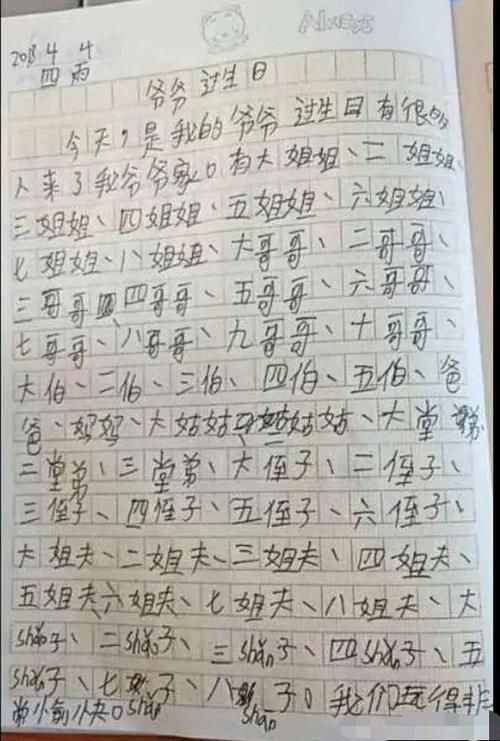 Always
2018 4 4
四 雨
爷爷过生日
今天，是我的爷爷过生日有很多
人来了我爷爷家。有大姐姐、二姐姐、
三姐姐、四姐姐、五姐姐、六姐姐、
七姐姐、八姐姐、大哥哥、二哥哥、
三哥哥、四哥哥、五哥哥、六哥哥、
七哥哥、八哥哥、九哥哥、十哥哥、
大伯、二伯、三伯、四伯、五伯、爸
爸、妈妈、大姑姑、二姑姑、大堂弟、
二堂弟、三堂弟、大侄子、二侄子、
三侄子、四侄子、五侄子、六侄子、
大姐夫、二姐夫、三姐夫、四姐夫、
五姐夫、六姐夫、七姐夫、八姐夫、大
shǎn子、二shǎn子、三shǎn子、四shǎn子、五
shǎn子、七shǎn子、八shǎn子。我们玩得非
常愉快。